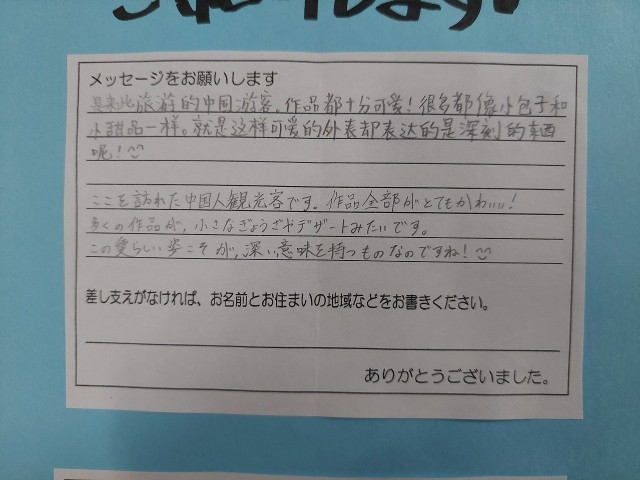 メッセージをお願いします
是来此旅游的中国游客。作品都十分可爱！很多都像小包子和
小甜品一样。就是这样可爱的外表却表达的是深刻的东西
呢！
ここを訪れた中国人観光客です。作品全部がとてもかわいい！
多くの作品が、小さなぎょうざやデザートみたいです。
この愛らしい姿こそが、深い意味を持つものなのですね！
差し支えがなければ、お名前とお住まいの地域などをお書きください。
ありがとうございました。